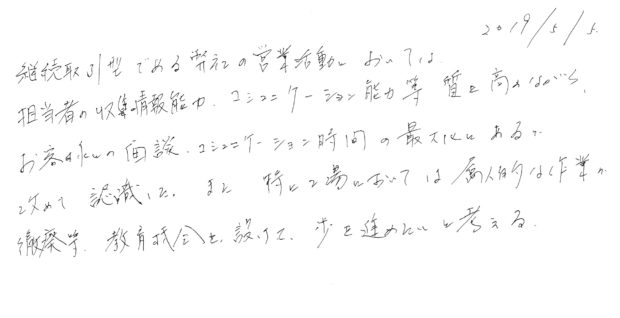 2019/5/5.
継続取引型である弊社の営業活動においては、
担当者の収集情報能力、コミュニケーション能力等 質を高めながら、
お客様との面談、コミュニケーション時間の最大化にあると
改めて認識した。また 特に工場においては属人的な作業の
撤廃等、教育機会を設けて、歩を進めたいと考える。